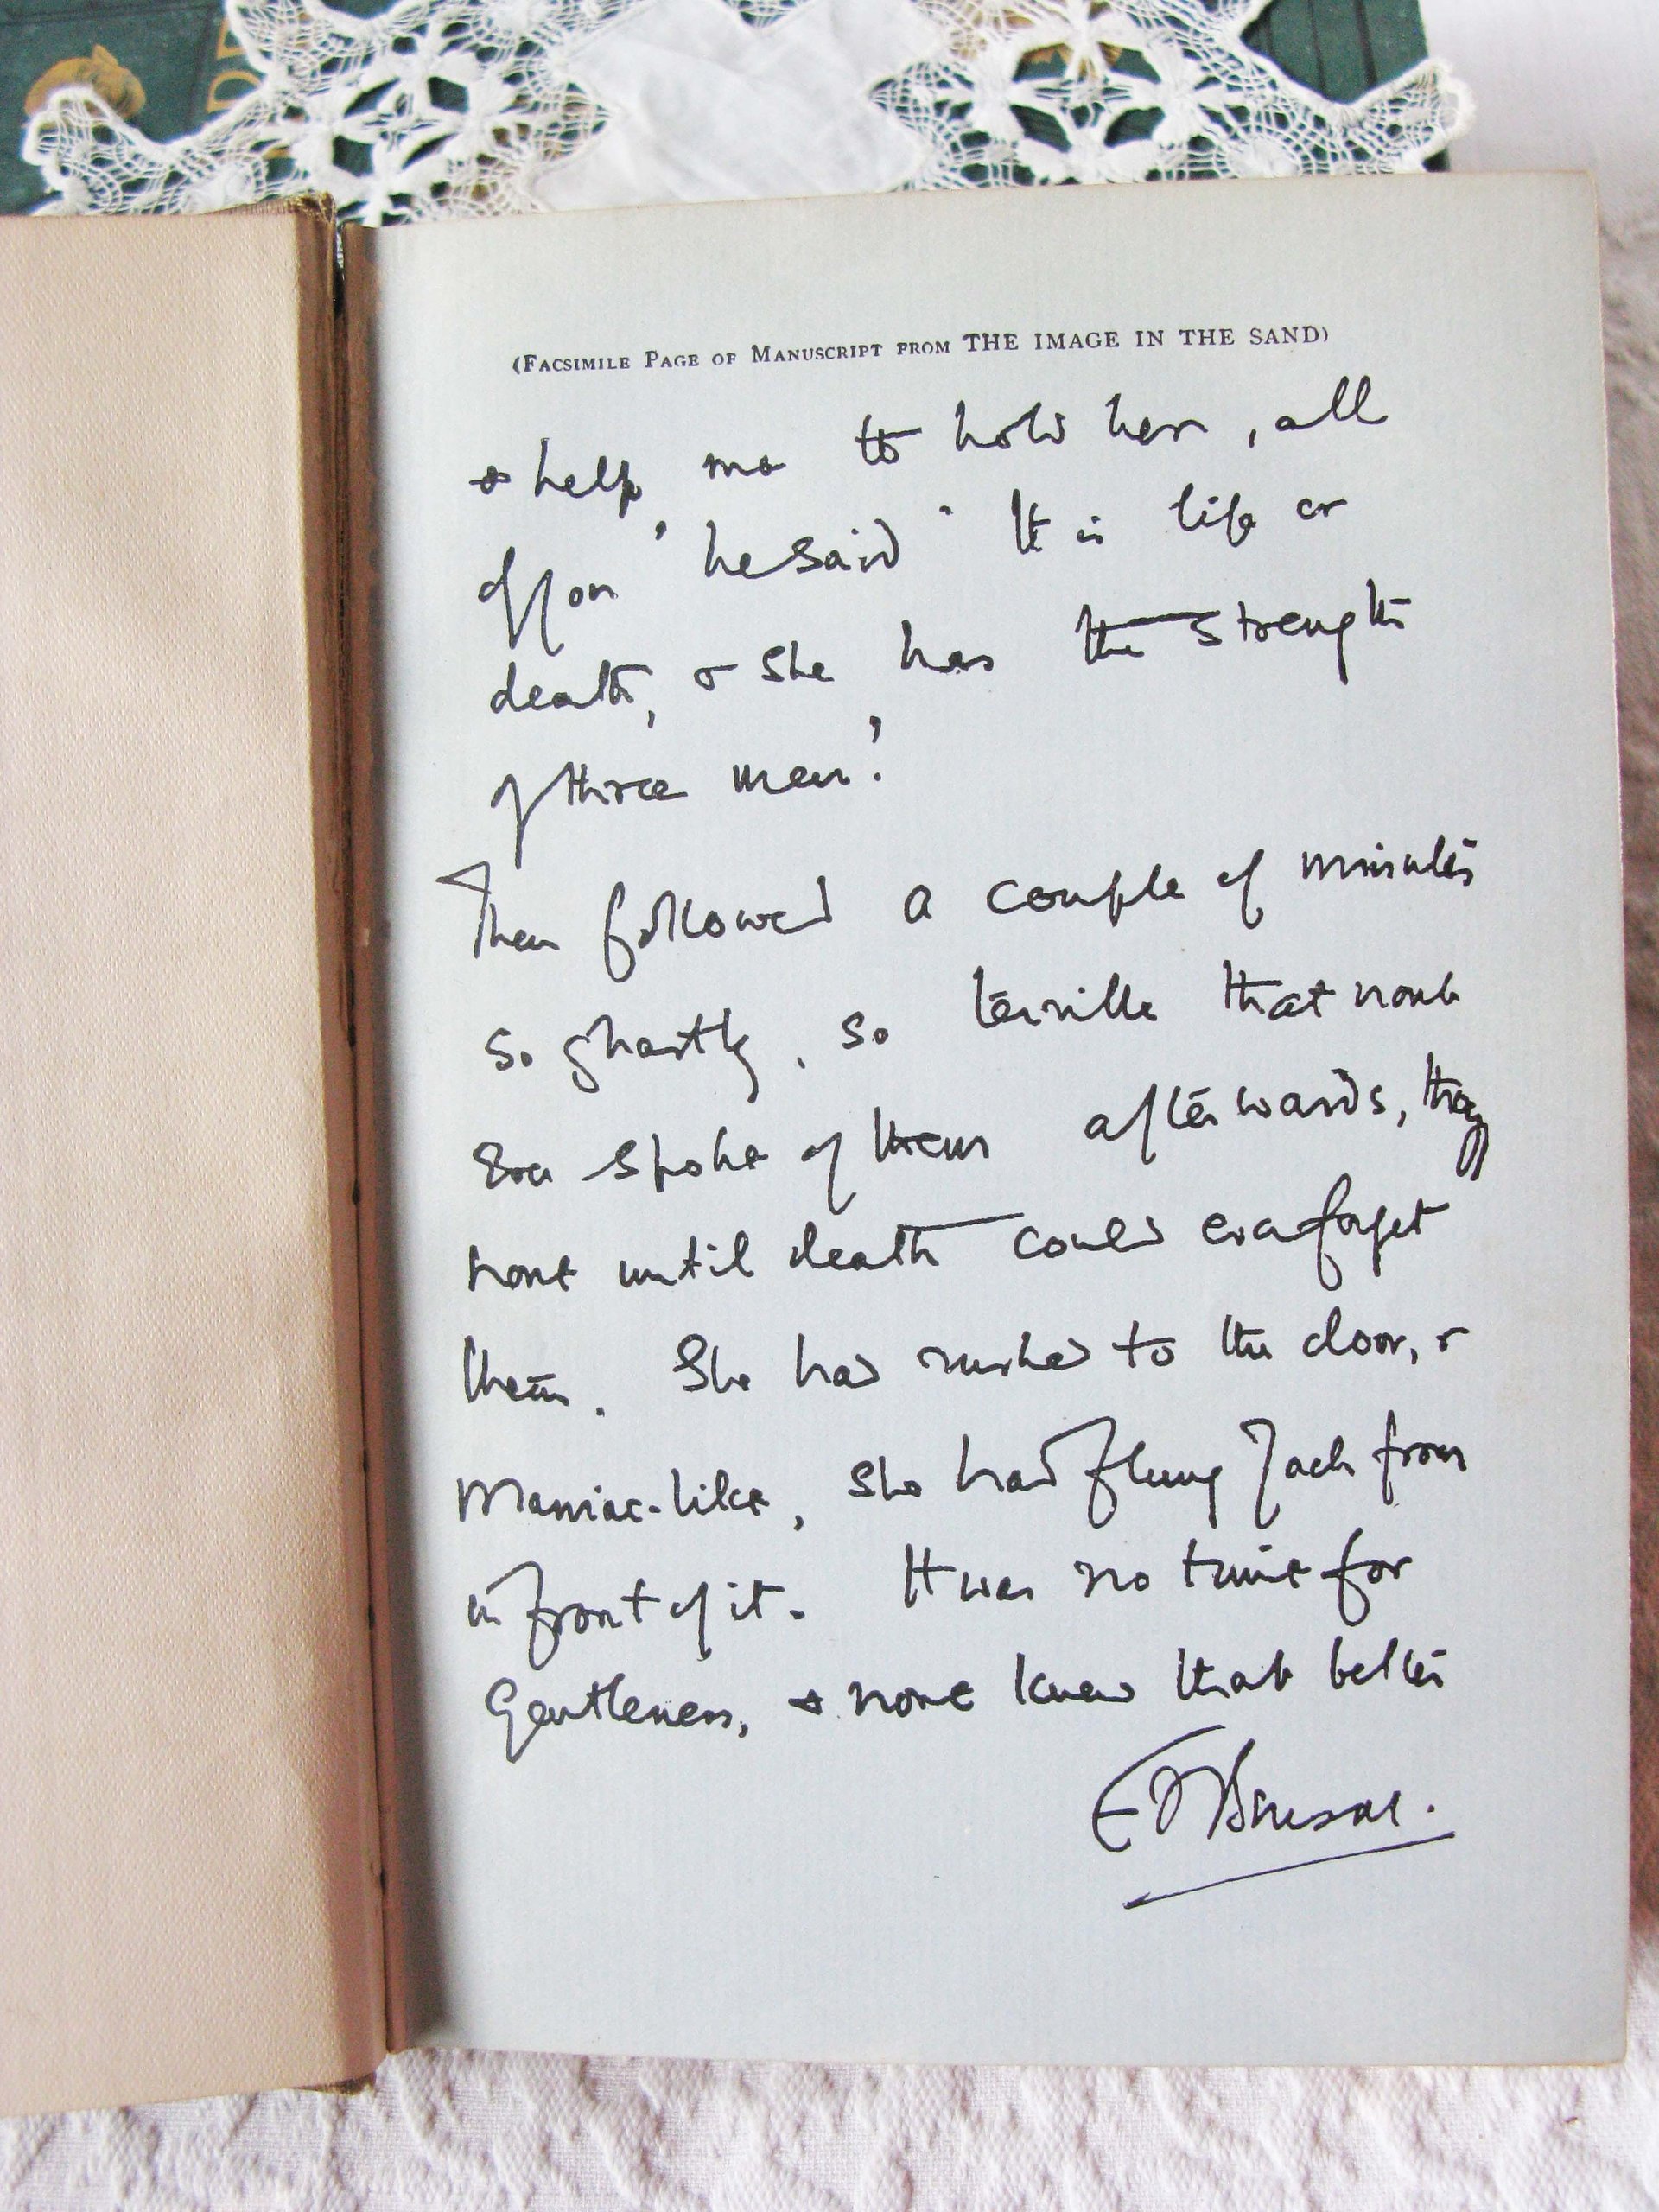 (FACSIMILE PAGE OF MANUSCRIPT FROM THE IMAGE IN THE SAND)
& help me to hold her, all
of you" he said "It is life or
death, & she has the strength
of three men!"
Then followed a couple of minutes
so ghastly, so terrible that none
ever spoke of them afterwards, though
none until death could ever forget
them. She had rushed to the door, &
Maniac-like, she had flung Jack from
in front of it. It was no time for
Gentleness, & none knew that better
EFBenson.